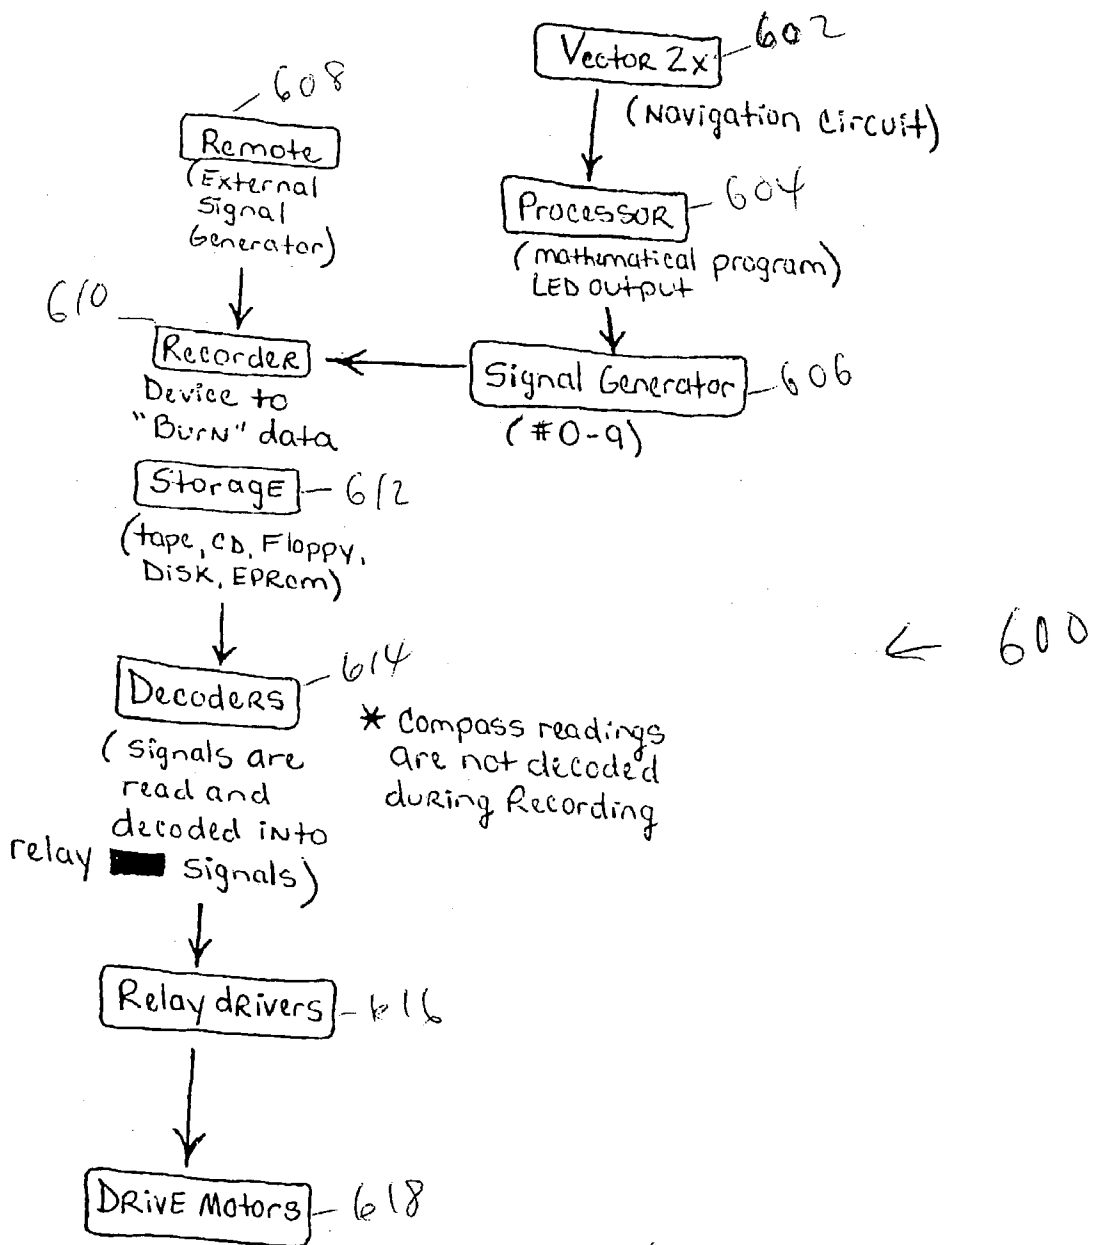 608
Remote
(External
Signal
Generator)
Vector 2x
602
(Navigation Circuit)
Processor
604
(mathematical program)
LED output
610
Recorder
Device to
"Burn" data
Signal Generator
606
(#0-9)
Storage
612
(tape, CD, Floppy,
Disk, EPRom)
600
Decoders
614
(Signals are
read and
decoded into
relay signals)
* Compass readings
are not decoded
during Recording
Relay drivers
616
Drive Motors
618